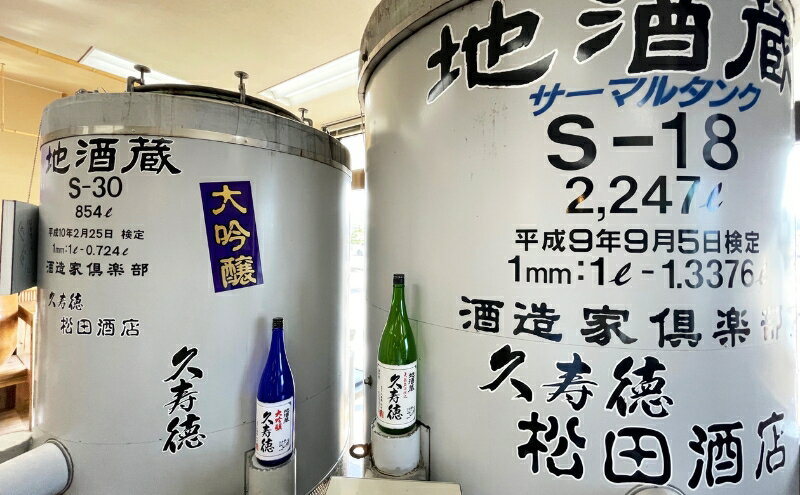 地酒蔵
S-30
854ℓ
平成10年2月25日 検定
1mm:1ℓ-0.724ℓ
酒造家倶楽部
久寿徳
松田酒店
久寿徳
大吟醸
地酒蔵
大吟醸
久寿徳
地酒蔵
久寿徳
地酒蔵
サーマルタンク
S-18
2,247ℓ
平成9年9月5日検定
1mm:1ℓ-1.3376ℓ
酒造家倶楽部
久寿徳
松田酒店